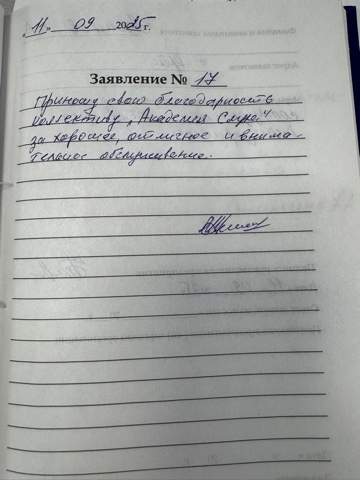 „11" 09 2025 г.
Заявление № 17
Приношу свою благодарность
коллективу „Академия Слуха"
за хорошее, отличное и внима-
тельное обслуживание.